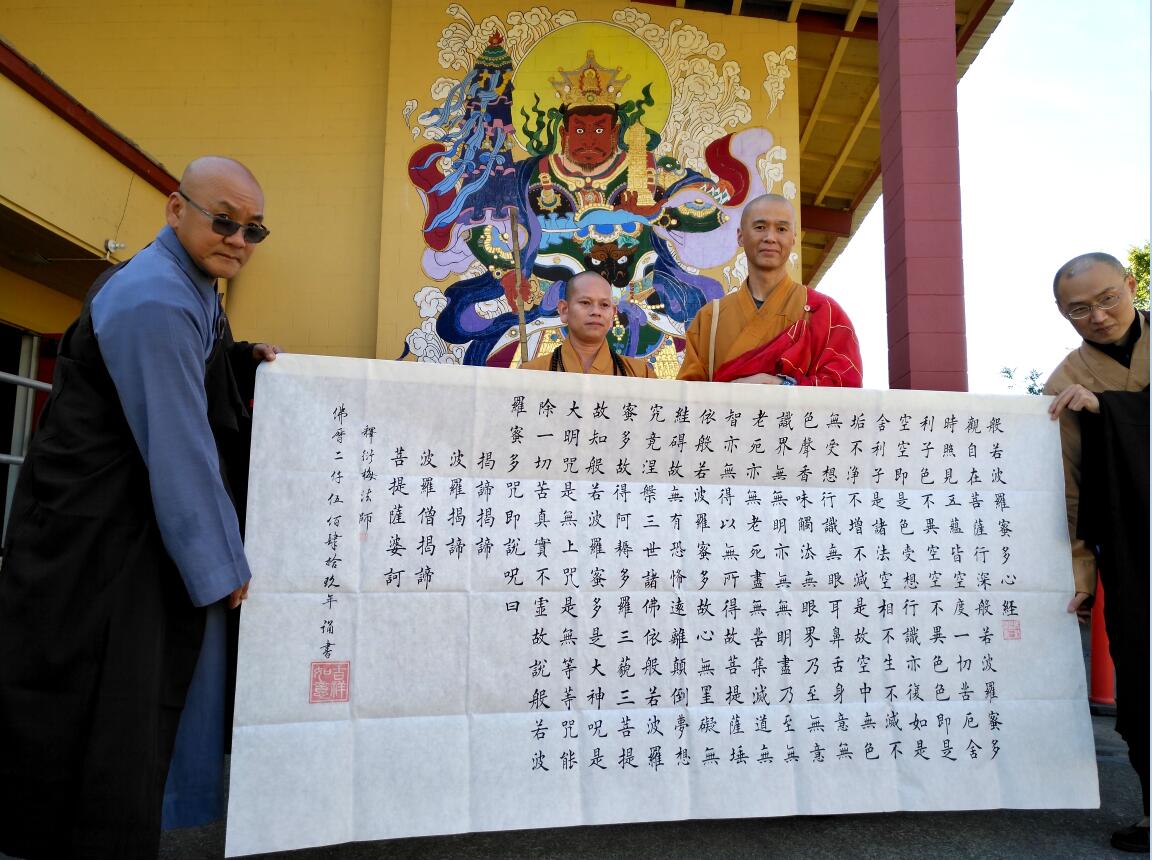 般若波羅蜜多心経
觀自在菩薩行深般若波羅蜜多
時照見五蘊皆空度一切苦厄舍
利子色不異空空不異色色即是
空空即是色受想行識亦復如是
舍利子是諸法空相不生不滅不
垢不淨不增不減是故空中無色
無受想行識無眼耳鼻舌身意無
色聲香味觸法無眼界乃至無意
識界無無明亦無無明盡乃至無
老死亦無老死盡無苦集滅道無
智亦無得以無所得故菩提薩埵
依般若波羅蜜多故心無罣礙無
絓碍故無有恐怖遠離顛倒夢想
究竟涅槃三世諸佛依般若波羅
蜜多故得阿耨多羅三藐三菩提
故知般若波羅蜜多是大神呪是
大明咒是無上咒是無等等咒能
除一切苦真實不虛故說般若波
羅蜜多咒即說呪曰
揭諦揭諦
波羅揭諦
波羅僧揭諦
菩提薩婆訶
釋衍梅法師
佛曆二仟伍佰肆拾玖年誦書
吉祥如意